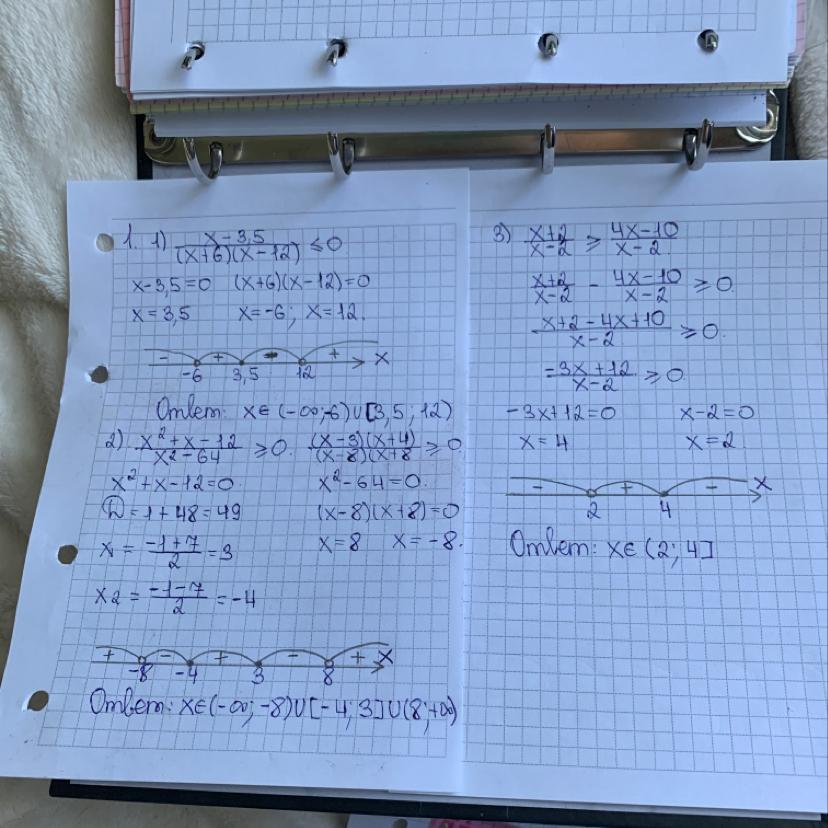 1. 1) (x-3,5)/((x+6)(x-12)) ≤ 0
x-3,5=0 (x+6)(x-12)=0
x=3,5 x=-6; x=12.
- + - + x
-6 3,5 12
Ответ: x∈(-∞;-6)∪[3,5; 12)
2) (x²+x-12)/(x²-64) ≥ 0. ((x-3)(x+4))/((x-8)(x+8) ≥ 0
x²+x-12=0. x²-64=0.
D=1+48=49 (x-8)(x+8)=0
x=(-1+7)/2=3 x=8 x=-8.
x2=(-1-7)/2=-4
+ - + - + x
-8 -4 3 8
Ответ: x∈(-∞;-8)∪[-4;3]∪(8;+∞)
3) (x+2)/(x-2) ≥ (4x-10)/(x-2)
(x+2)/(x-2) - (4x-10)/(x-2) ≥ 0
(x+2-4x+10)/(x-2) ≥ 0.
(-3x+12)/(x-2) ≥ 0
-3x+12=0 x-2=0
x=4 x=2.
- + - x
2 4
Ответ: x∈(2; 4]